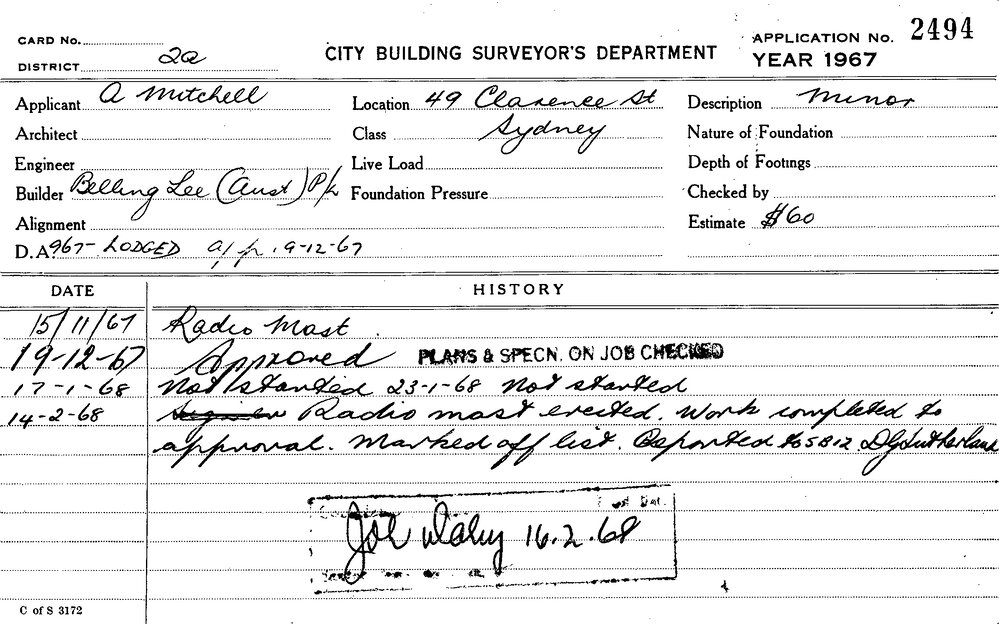 CARD No.
DISTRICT 2a
CITY BUILDING SURVEYOR'S DEPARTMENT
APPLICATION No. 2494
YEAR 1967
Applicant A Mitchell
Location 49 Clarence St
Description Minor
Architect
Class Sydney
Nature of Foundation
Engineer
Live Load
Depth of Footings
Builder Belling Lee (Aust) P/L
Foundation Pressure
Checked by
Alignment
Estimate $60
D.A. 967- LODGED 9-12-67
DATE HISTORY
15/11/67 Radio Mast
19-12-67 Approved PLANS & SPECN. ON JOB CHECKED
17-1-68 Not started 23-1-68 Not started
14-2-68 Radio mast erected. Work completed to
approval. Marked off list. Reported to SB12. DGSutherland
16.2.68
C of S 3172